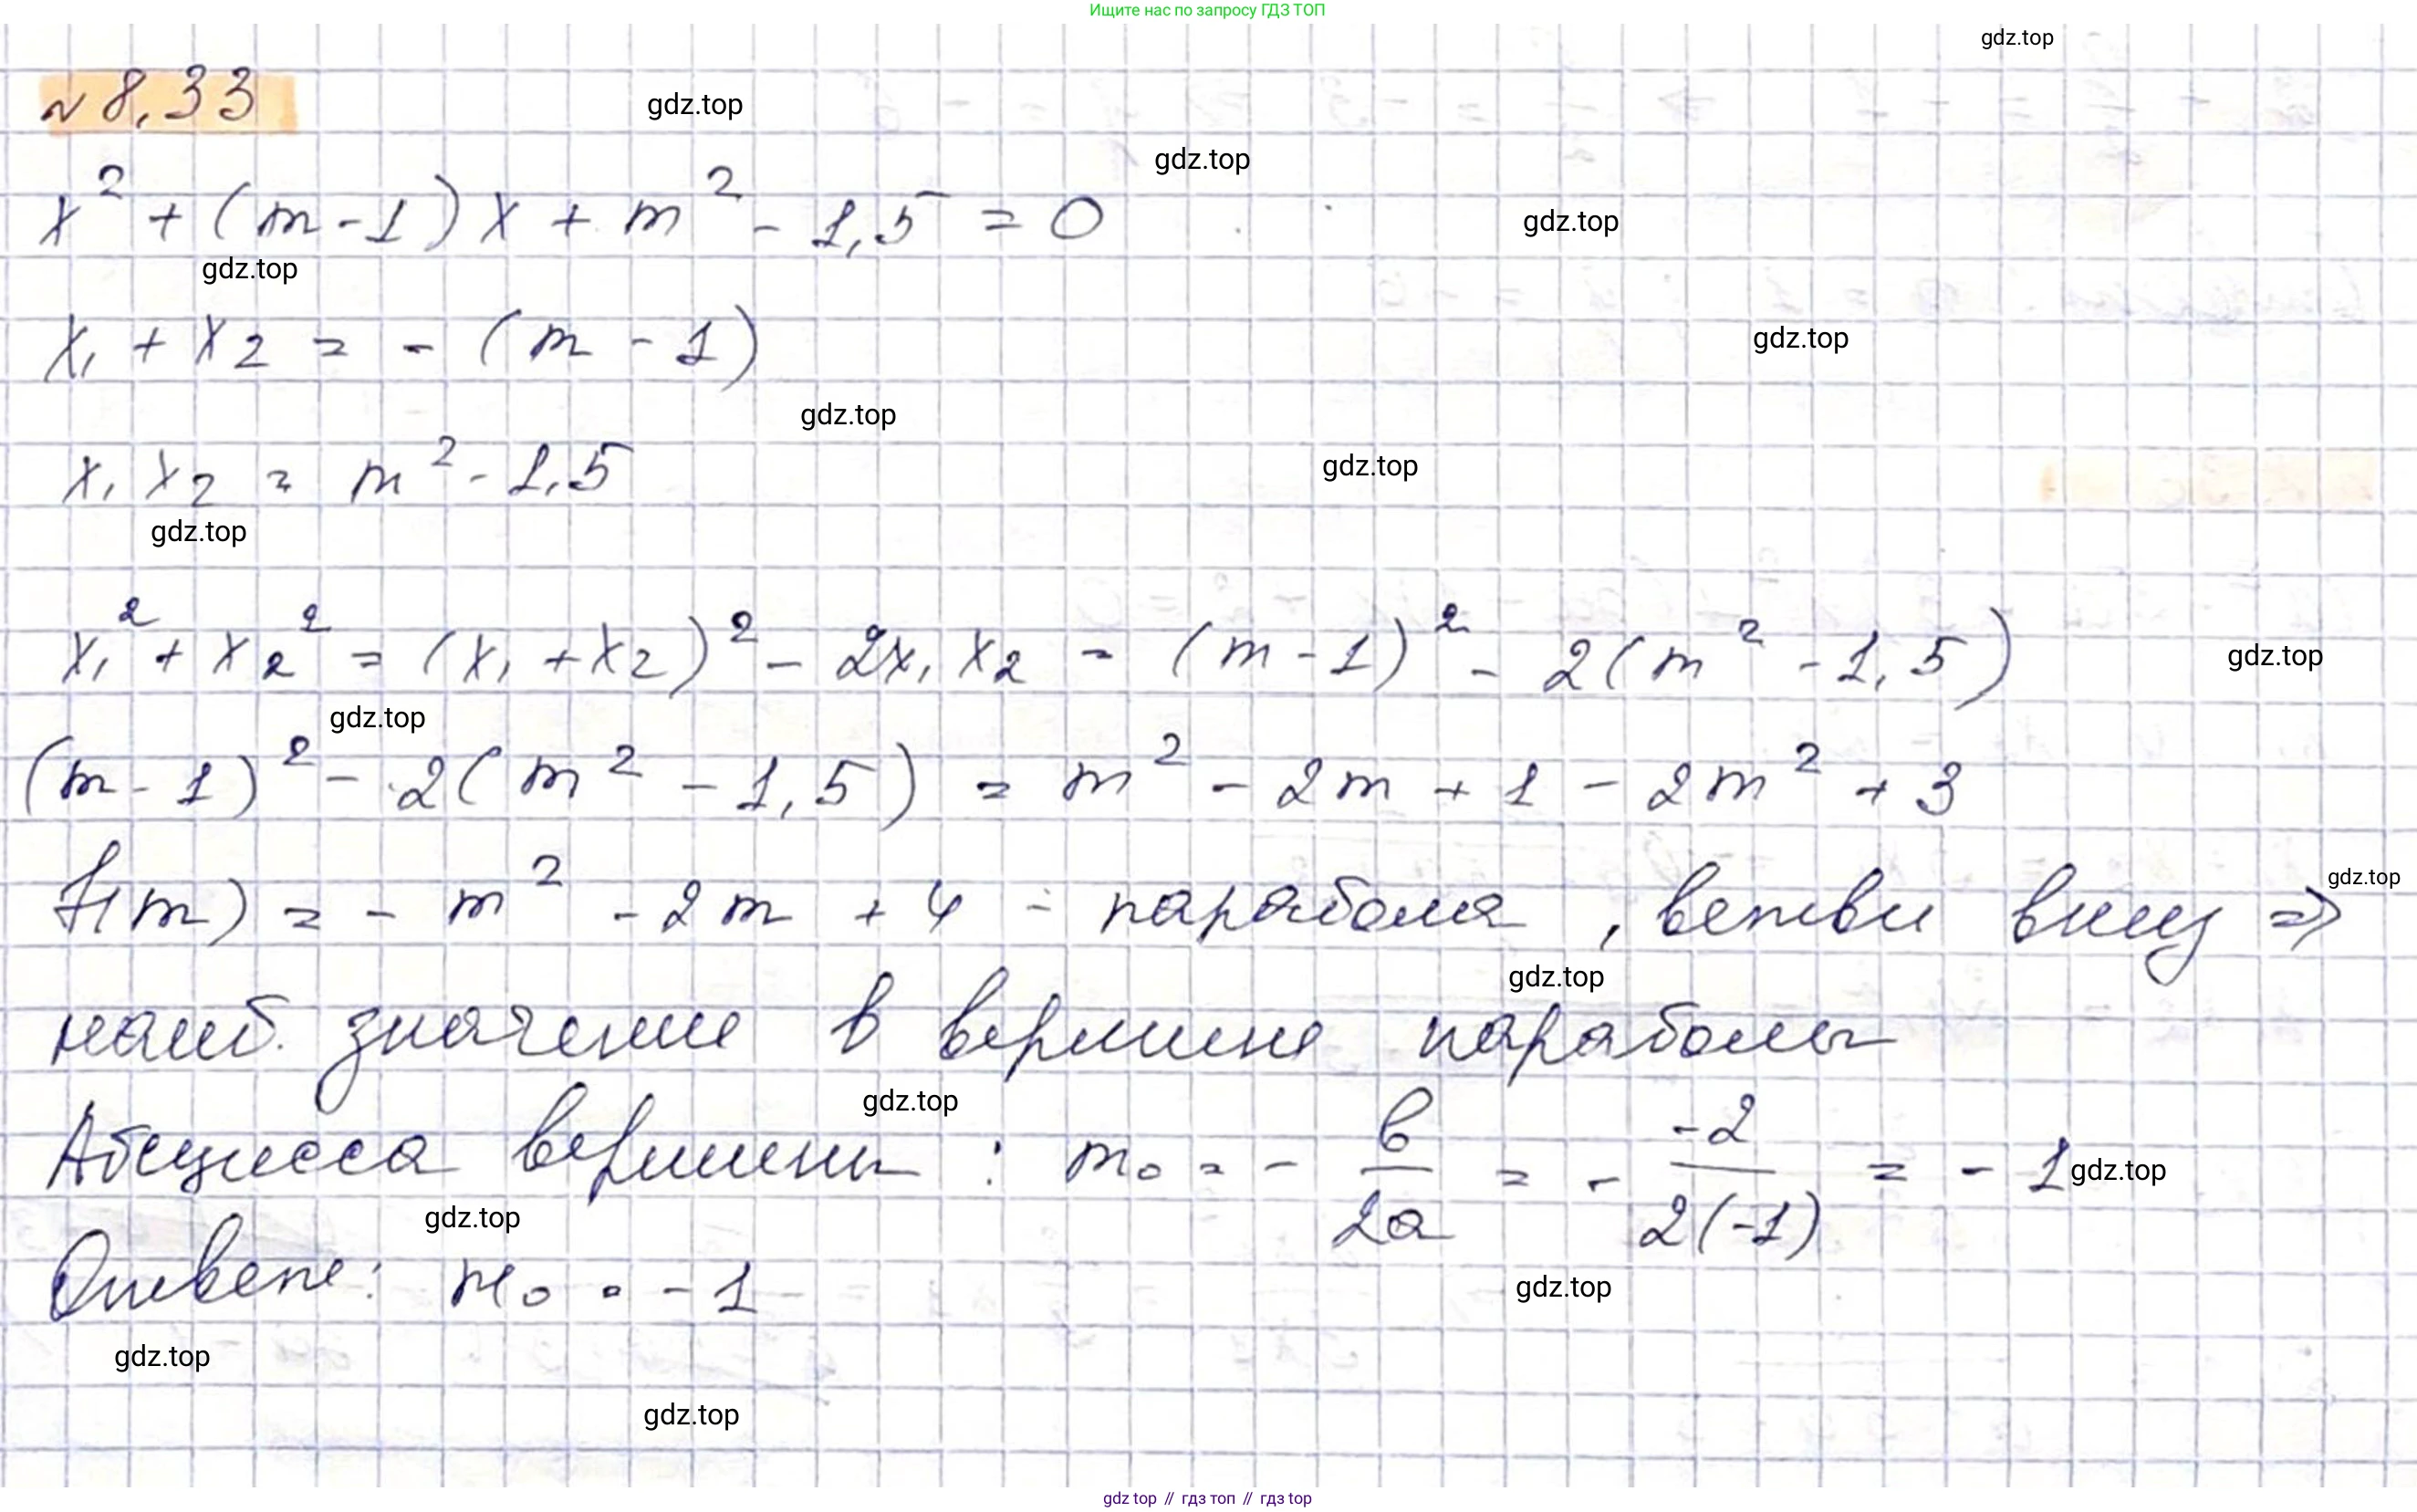 Ищите нас по запросу ГДЗ ТОП
gdz.top
№ 8.33
gdz.top
gdz.top
x² + (m-1)x + m² - 1,5 = 0
gdz.top
gdz.top
x₁ + x₂ = - (m - 1)
gdz.top
gdz.top
x₁ x₂ = m² - 1,5
gdz.top
gdz.top
x₁² + x₂² = (x₁ + x₂)² - 2x₁ x₂ = (m - 1)² - 2(m² - 1,5)
gdz.top
gdz.top
(m - 1)² - 2(m² - 1,5) = m² - 2m + 1 - 2m² + 3
f(m) = - m² - 2m + 4 - парабола, ветви вниз ⇒
gdz.top
gdz.top
наиб. значение в вершине параболы
gdz.top
Абсцисса вершины: m₀ = - в/2a = - -2/2(-1) = - 1
gdz.top
gdz.top
Ответ: m₀ = - 1
gdz.top
gdz.top
gdz.top
gdz top // гдз топ // гдз top